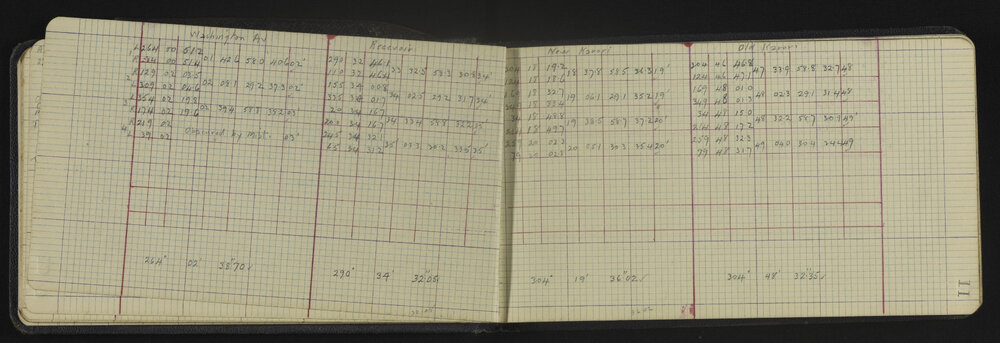 Washington Av Reservoir
L 264 00 51.2 290 32 46.1
R 84 00 51.4 01 42.6 58.0 40.6 02' 110 32 46.4 33 32.3 58.3 30.8 34'
R 129 02 03.5 155 34 00.8
L 309 02 04.6 02 08.1 29.2 37.3 02' 335 34 01.7 34 02.5 29.2 31.7 34'
L 354 02 19.8 20 34 16.7
R 174 02 19.6 02 39.4 58.8 38.2 03' 200 34 16.7 34 33.4 58.8 32.2 35'
R 219 02 245 34 32.1
L 39 02 Obscured by Mist. 03' 65 34 31.2 35 03.3 30.2 33.5 35'
264° 02' 38"70 290° 34' 32"05
32.05
New Karori Old Karori
304 18 19.2 304 46 46.8
124 18 18.6 18 37.8 58.5 36.3 19' 124 46 47.1 47 33.9 58.8 32.7 48
169 18 32.7 169 48 01.0
349 18 33.4 19 06.1 29.1 35.2 19' 349 48 01.3 48 02.3 29.1 31.4 48
34 18 48.8 34 48 15.0
214 18 49.7 19 38.5 58.7 37.2 20' 214 48 17.2 48 32.2 58.7 30.9 49'
259 20 02.3 259 48 32.3
79 20 02.3 20 05.1 30.3 35.4 20' 79 48 31.7 49 04.0 30.4 34.4 49
304° 19' 36"02 304° 48' 32"35
36.02
11